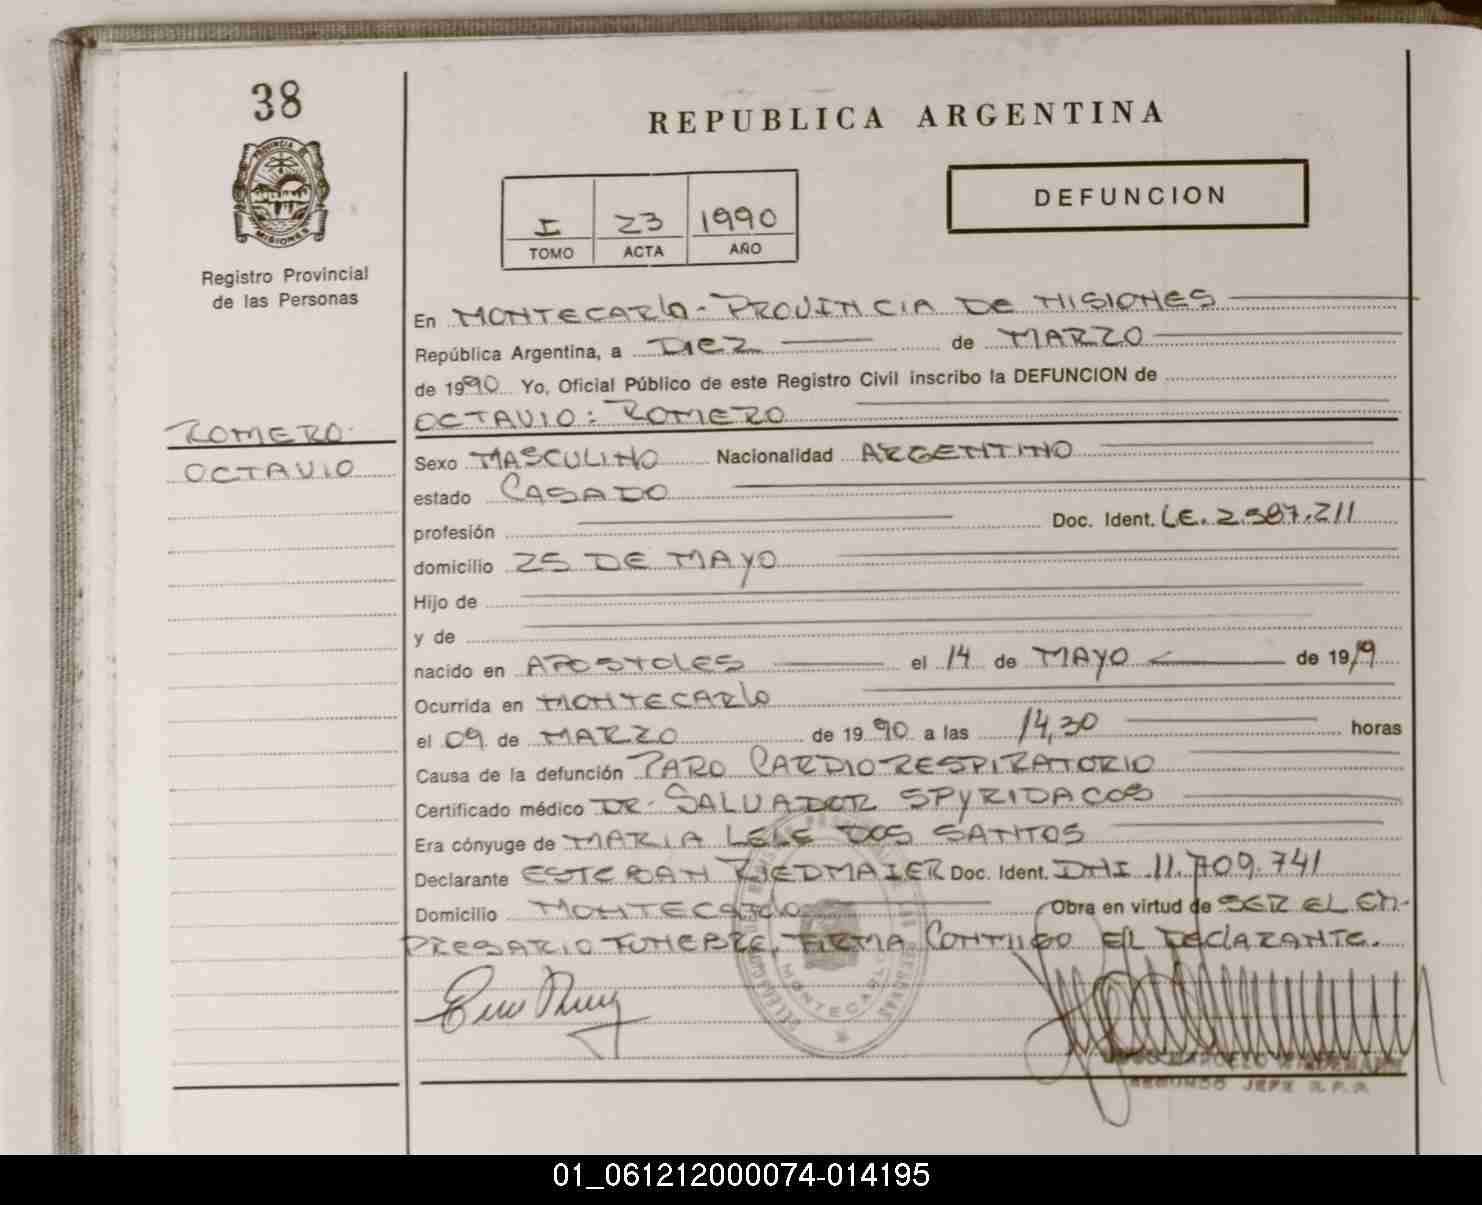 38
PROVINCIA DE
MISIONES
Registro Provincial
de las Personas
ROMERO
OCTAVIO
REPUBLICA ARGENTINA
DEFUNCION
I 23 1990
TOMO ACTA AÑO
En MONTECARlo - PROVINCIA DE MISIONES
República Argentina, a DIEZ de MARZO
de 1990 Yo, Oficial Público de este Registro Civil inscribo la DEFUNCION de
OCTAVIO: ROMERO
Sexo MASCULINO Nacionalidad ARGENTINO
estado CASADO
profesión Doc. Ident. LE. 2.587.211
domicilio 25 DE MAYO
Hijo de
y de
nacido en APOSTOLES el 14 de MAYO de 1919
Ocurrida en MONTECARlo
el 09 de MARZO de 1990 a las 14,30 horas
Causa de la defunción PARO CARDIORESPIRATORIO
Certificado médico DR. SALVADOR SPYRIDACOS
Era cónyuge de MARIA LELE DOS SANTOS
Declarante ESTEBAN RIEDMAIER Doc. Ident. DNI 11.709.741
Domicilio MONTECARlo Obra en virtud de SER EL EM-
PRESARIO FUNEBRE, FIRMA CONMIGO EL DEClARANTE.
MONTECARLO
SEGUNDO JEFE R.P.P.
01_061212000074-014195